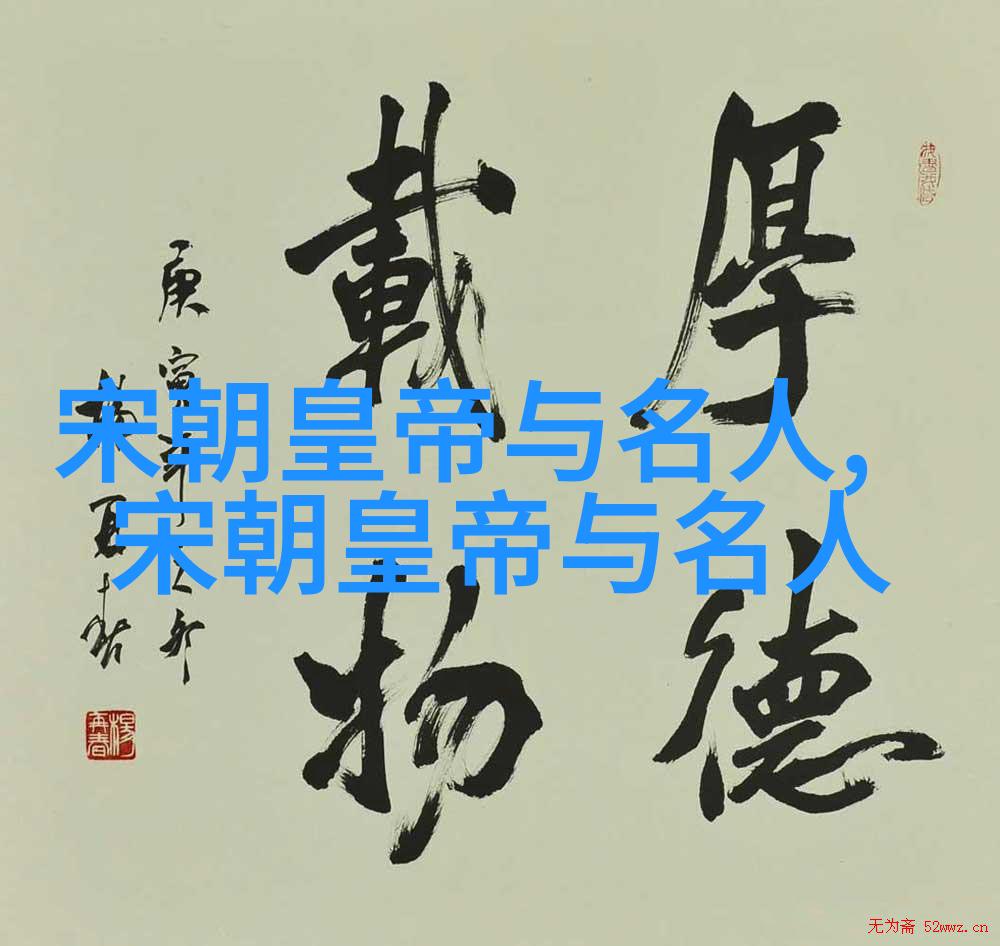 厚德
載物
庚寅年
楊再春
宋朝皇帝与名人,
宋朝皇帝与名人
楊再春
无为斋 52wwz.cn